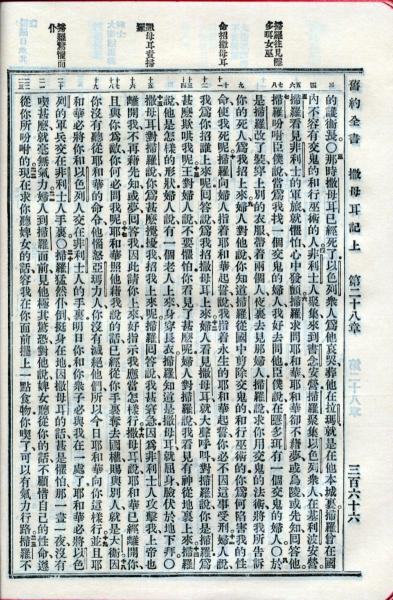 舊約全書 撒母耳記上 第二十八章 三百六十六
掃羅往見隱多珥女巫
命招撒母耳
撒母耳責掃羅
掃羅驚懼而仆
的護衛長○那時撒母耳已經死了以色列衆人爲他哀哭葬他在拉瑪就是在他本城裏掃羅曾在國
內不容有交鬼的和行巫術的人非利士人聚集來到書念安營掃羅聚集以色列衆人在基利波安營
掃羅看見非利士的軍旅就懼怕心中發顫掃羅求問耶和華耶和華卻不藉夢或烏陵或先知回答他
掃羅吩咐臣僕說當爲我找一個交鬼的婦人我好去問他臣僕說在隱多珥有一個交鬼的婦人○於
是掃羅改了裝穿上別的衣服帶着兩個人夜裏去見那婦人掃羅說求你用交鬼的法術將我所告訴
你的死人爲我招上來婦人對他說你知道掃羅從國中剪除交鬼的和行巫術的你爲何陷害我的性
命使我死呢掃羅向婦人指着耶和華起誓說我指着永生的耶和華起誓你必不因這事受刑婦人說
我爲你招誰上來呢回答說爲我招撒母耳上來婦人看見撒母耳就大聲呼叫對掃羅說你是掃羅爲
甚麼欺哄我呢王對婦人說不要懼怕你看見了甚麼呢婦人對掃羅說我看見有神從地裏上來掃羅
說他是怎樣的形狀婦人說有一個老人上來身穿長衣掃羅知道是撒母耳就屈身臉伏於地下拜○
撒母耳對掃羅說你爲甚麼攪擾我招我上來呢掃羅回答說我甚窘急因爲非利士人攻擊我上帝也
離開我不再藉先知或夢回答我因此請你上來好指示我應當怎樣行撒母耳說耶和華已經離開你
且與你爲敵你何必問我呢耶和華照他藉我說的話已經從你手裏奪去國權賜與別人就是大衛因
你沒有聽從耶和華的命令他惱怒亞瑪力人你沒有滅絕他們所以今日耶和華向你這樣行並且耶
和華必將你和以色列人交在非利士人的手裏明日你和你衆子必與我在一處了耶和華必將以色
列的軍兵交在非利士人手裏○掃羅猛然仆倒挺身在地因撒母耳的話甚是懼怕那一晝一夜沒有
喫甚麼就毫無氣力婦人到掃羅面前見他極其驚恐對他說婢女聽從你的話不顧惜自己的性命遵
從你所吩咐的現在求你聽婢女的話容我在你面前擺上一點食物你喫了可以有氣力行路掃羅不